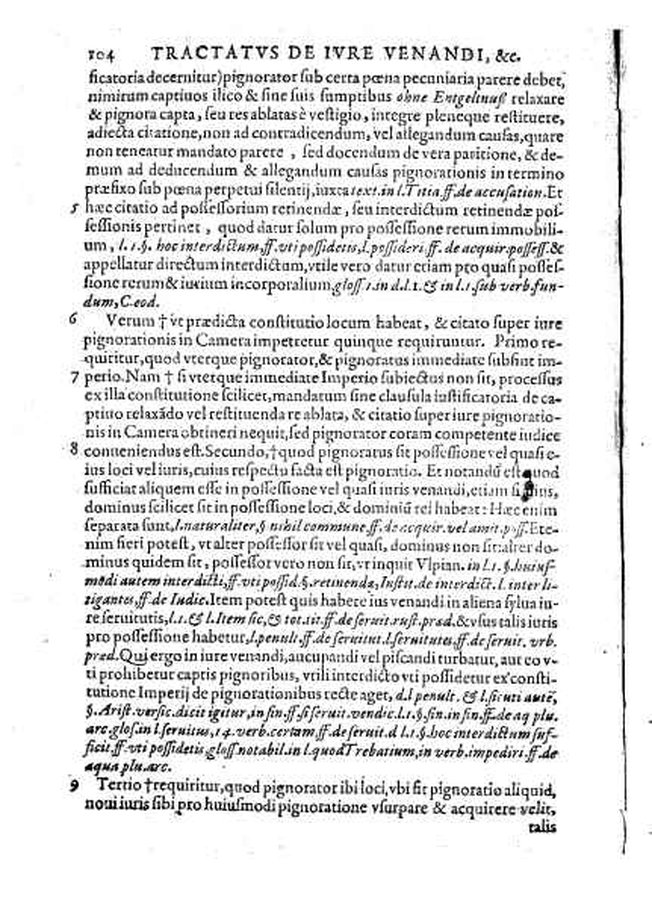 104 TRACTATVS DE IVRE VENANDI, &c.
ficatoria decernitur) pignorator sub certa pœna pecuniaria parere debet,
nimirum captiuos ilico & sine suis sumptibus ohne Entgeltnuß relaxare
& pignora capta, seu res ablatas è vestigio, integre pleneque restituere,
adiecta citatione, non ad contradicendum, vel allegandum causas, quare
non teneatur mandato parere, sed docendum de vera paritione, & de-
mum ad deducendum & allegandum causas pignorationis in termino
præfixo sub pœna perpetui silentij, iuxta text. in l. Titia. ff. de accusation. Et
5 hæc citatio ad possessorium retinendæ, seu interdictum retinendæ pos-
sessionis pertinet, quod datur solum pro possessione rerum immobili-
um, l. 1. §. hoc interdictum, ff. vti possidetis, l. possideri. ff. de acquir. possess. &
appellatur directum interdictum, vtile vero datur etiam pro quasi posses-
sione rerum & iurium incorporalium, gloss. 1. in d. l. 1. & in l. 1. sub verb. fun-
dum, C. eod.
6 Verum † vt prædicta constitutio locum habeat, & citato super iure
pignorationis in Camera impetretur quinque requiruntur. Primo re-
quiritur, quod vterque pignorator, & pignoratus immediate subsint im-
7 perio. Nam † si vterque immediate Imperio subiectus non sit, processus
ex illa constitutione scilicet, mandatum sine clausula iustificatoria de ca-
ptiuo relaxãdo vel restituenda re ablata, & citatio super iure pignoratio-
nis in Camera obtineri nequit, sed pignorator coram competente iudice
8 conueniendus est. Secundo, † quod pignoratus sit possessione vel quasi e-
ius loci vel iuris, cuius respectu facta est pignoratio. Et notandũ est quod
sufficiat aliquem esse in possessione vel quasi iuris venandi, etiam si
dominus scilicet sit in possessione loci, & dominiũ rei habeat: Hæc enim
separata sunt, l. naturaliter, § nihil commune. ff. de acquir. vel amit. poss. Ete-
nim fieri potest, vt alter possessor sit vel quasi, dominus non sit: alter do-
minus quidem sit, possessor vero non sit, vt inquit Vlpian. in l. 1. §. huius-
modi autem interdicti, ff. vti possid. §. retinendæ, Instit. de interdict. l. inter li-
tigantes, ff. de Iudic. Item potest quis habere ius venandi in aliena sylua iu-
re seruitutis, l. 1. & l. Item sic, & tot. tit. ff. de seruit. rust. præd. & vsus talis iuris
pro possessione habetur, l. penult. ff. de seruitut. l. seruitutes, ff. de seruit. vrb.
præd. Qui ergo in iure venandi, aucupandi vel piscandi turbatur, aut eo v-
ti prohibetur captis pignoribus, vtili interdicto vti possidetur ex consti-
tutione Imperij de pignorationibus recte aget, d. l penult. & l. sicuti autẽ,
§. Arist. versic. dicit igitur, in fin. ff. si seruit. vendic. l. 1. §. fin. in fin. ff. de aq plu.
arc. glos. in l. seruitus, 14. verb. certam, ff. de seruit. d l. 1. §. hoc interdictum suf-
ficit. ff. vti possidetis, gloss. notabil. in l. quod Trebatium, in verb. impediri. ff. de
aqua plu. arc.
9 Tertio † requiritur, quod pignorator ibi loci, vbi fit pignoratio aliquid,
noui iuris sibi pro huiusmodi pignoratione vsurpare & acquirere velit,
talis